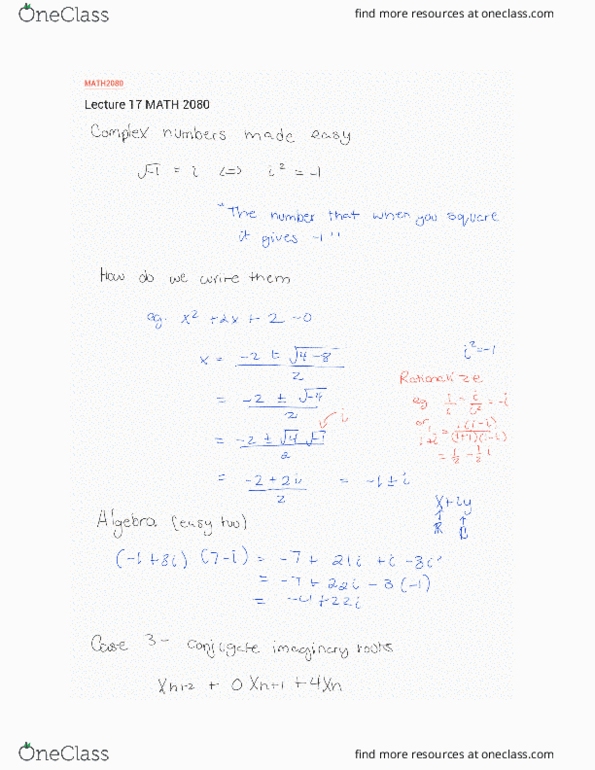 OneClass
find more resources at oneclass.com
MATH2080
Lecture 17 MATH 2080
Complex numbers made easy
√-1 = i <=> i² = -1
"The number that when you square
it gives -1"
How do we write them
eg. x² + 2x + 2 = 0
x = (-2 ± √4-8)/2
i² = -1
= (-2 ± √-4)/2
Rationalize
eg 1/i = i/i² = -i
= (-2 ± √4 √-1)/2
i
or, 1/1+i = 1(1-i)/(1+i)(1-i)
= 1/2 - 1/2 i
= (-2 + 2i)/2 = -1 ± i
x+iy
↑ ↑
ℝ ℝ
Algebra (easy two)
(-1 + 3i) (7-i) = -7 + 21i + i - 3i²
= -7 + 22i - 3(-1)
= -4 + 22i
Case 3 - conjugate imaginary roots
Xn+2 + 0Xn+1 + 4Xn
OneClass
find more resources at oneclass.com